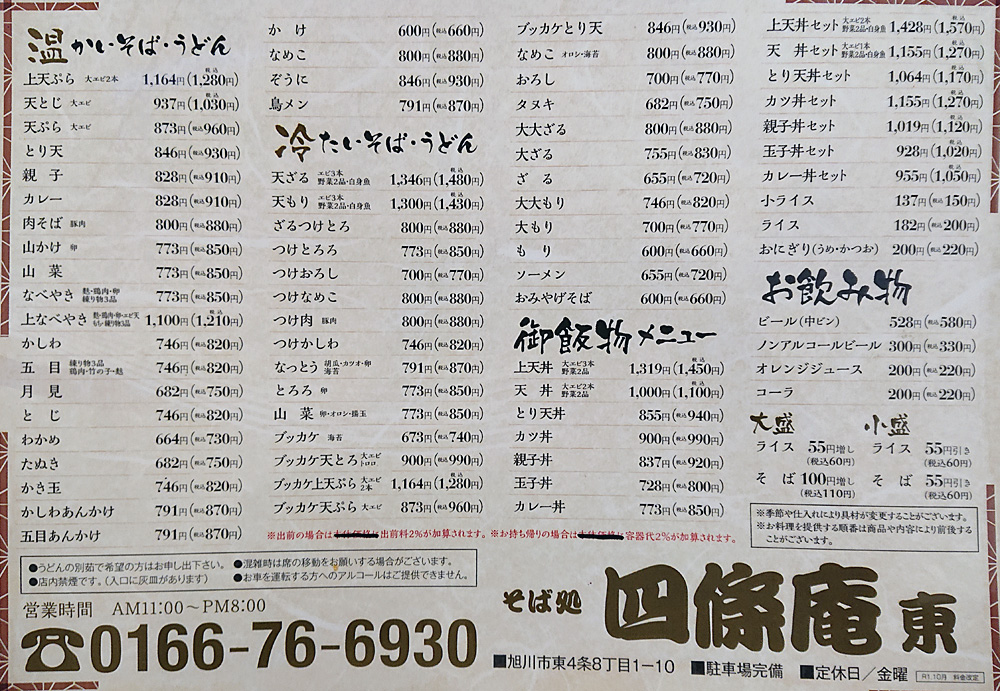 温かいそば・うどん
上天ぷら 大エビ2本 1,164円(税込1,280円)
天とじ 大エビ 937円(税込1,030円)
天ぷら 大エビ 873円(税込960円)
とり天 846円(税込930円)
親子 828円(税込910円)
カレー 828円(税込910円)
肉そば 豚肉 800円(税込880円)
山かけ 卵 773円(税込850円)
山菜 773円(税込850円)
なべやき 麩・鶏肉・卵 練り物3品 773円(税込850円)
上なべやき 麩・鶏肉・卵・エビ天 もち・練り物3品 1,100円(税込1,210円)
かしわ 746円(税込820円)
五目 練り物3品 鶏肉・竹の子・麩 746円(税込820円)
月見 682円(税込750円)
とじ 746円(税込820円)
わかめ 664円(税込730円)
たぬき 682円(税込750円)
かき玉 746円(税込820円)
かしわあんかけ 791円(税込870円)
五目あんかけ 791円(税込870円)
かけ 600円(税込660円)
なめこ 800円(税込880円)
ぞうに 846円(税込930円)
鳥メン 791円(税込870円)
冷たいそば・うどん
天ざる エビ3本 野菜2品・白身魚 1,346円(税込1,480円)
天もり エビ3本 野菜2品・白身魚 1,300円(税込1,430円)
ざるつけとろ 800円(税込880円)
つけとろろ 773円(税込850円)
つけおろし 700円(税込770円)
つけなめこ 800円(税込880円)
つけ肉 豚肉 800円(税込880円)
つけかしわ 746円(税込820円)
なっとう 胡瓜・カツオ・卵 海苔 791円(税込870円)
とろろ 卵 773円(税込850円)
山菜 卵・オロシ・揚玉 773円(税込850円)
ブッカケ 海苔 673円(税込740円)
ブッカケ天とろ 大エビ トロロ 900円(税込990円)
ブッカケ上天ぷら 大エビ 2本 1,164円(税込1,280円)
ブッカケ天ぷら 大エビ 873円(税込960円)
ブッカケとり天 846円(税込930円)
なめこ オロシ・海苔 800円(税込880円)
おろし 700円(税込770円)
タヌキ 682円(税込750円)
大大ざる 800円(税込880円)
大ざる 755円(税込830円)
ざる 655円(税込720円)
大大もり 746円(税込820円)
大もり 700円(税込770円)
もり 600円(税込660円)
ソーメン 655円(税込720円)
おみやげそば 600円(税込660円)
御飯物メニュー
上天丼 大エビ3本 野菜2品 1,319円(税込1,450円)
天丼 大エビ2本 野菜2品 1,000円(税込1,100円)
とり天丼 855円(税込940円)
カツ丼 900円(税込990円)
親子丼 837円(税込920円)
玉子丼 728円(税込800円)
カレー丼 773円(税込850円)
上天丼セット 大エビ2本 野菜2品・白身魚 1,428円(税込1,570円)
天丼セット 大エビ1本 野菜2品・白身魚 1,155円(税込1,270円)
とり天丼セット 1,064円(税込1,170円)
カツ丼セット 1,155円(税込1,270円)
親子丼セット 1,019円(税込1,120円)
玉子丼セット 928円(税込1,020円)
カレー丼セット 955円(税込1,050円)
小ライス 137円(税込150円)
ライス 182円(税込200円)
おにぎり(うめ・かつお) 200円(税込220円)
お飲み物
ビール(中ビン) 528円(税込580円)
ノンアルコールビール 300円(税込330円)
オレンジジュース 200円(税込220円)
コーラ 200円(税込220円)
大盛
ライス 55円増し
(税込60円)
そば 100円増し
(税込110円)
小盛
ライス 55円引き
(税込60円)
そば 55円引き
(税込60円)
※季節や仕入れにより具材が変更することがございます。
※お料理を提供する順番は商品や内容により前後する
ことがございます。
※出前の場合は出前料2%が加算されます。※お持ち帰りの場合は容器代2%が加算されます。
●うどんの別茹で希望の方はお申し出下さい。 ●混雑時は席の移動をお願いする場合がございます。
●店内禁煙です。(入口に灰皿があります) ●お車を運転する方へのアルコールはご提供できません。
営業時間 AM11:00～PM8:00
☎0166-76-6930
そば処 四條庵 東
■旭川市東4条8丁目1-10 ■駐車場完備 ■定休日／金曜 R1.10月 料金改定